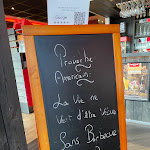 Google
Proverbe
Americain:
La Vie ne
Vaut d'être Vécue
Sans Barbecue